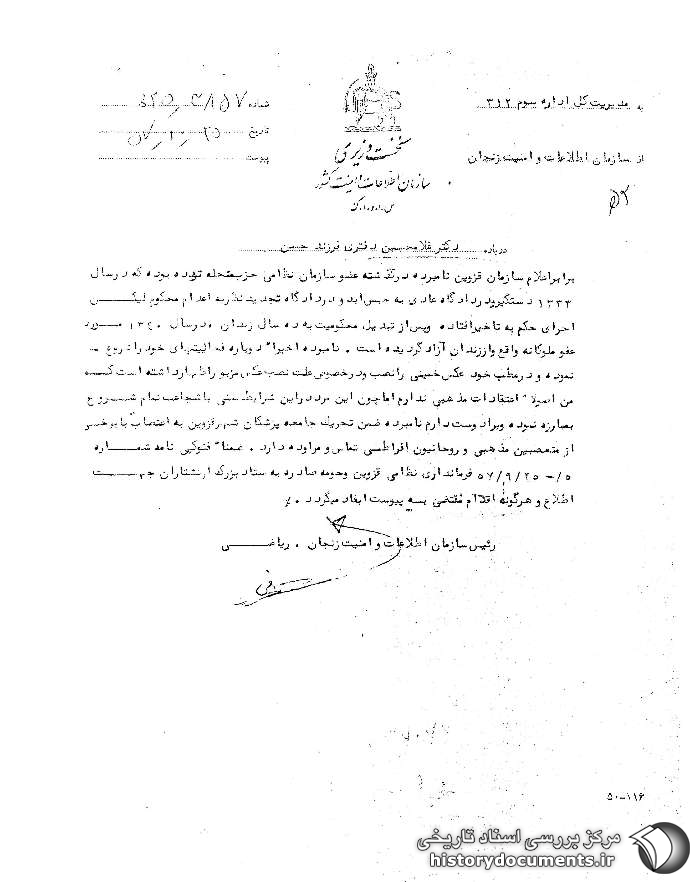 به مدیریت کل اداره سوم ۳۱۲
از سازمان اطلاعات و امنیت زنجان
نخست وزیری
سازمان اطلاعات و امنیت کشور
س.ا.و.ا.ک
شماره
تاریخ
پیوست
درباره دکتر غلامحسین دفتری فرزند حسن
برابر اعلام سازمان قزوین نامبرده درگذشته عضو سازمان نظامی حزب منحله توده بوده که در سال
۱۳۳۳ دستگیر و در دادگاه عادی به حبس ابد و در دادگاه تجدید نظر به اعدام محکوم لیکن
اجرای حکم به تاخیر افتاده و پس از تبدیل محکومیت به ده سال زندان ، در سال ۱۳۴۰ مورد
عفو ملوکانه واقع و از زندان آزاد گردیده است . نامبرده اخیرا" دوباره فعالیتهای خود را شروع
نموده و در مطب خود عکس خمینی را نصب و در خصوص علت نصب عکس مزبور اظهار داشته است که
من اصولا" اعتقادات مذهبی ندارم اما چون این مرد در این شرایط سنی با شجاعت تمام شروع
بمبارزه نموده ویرا دوست دارم نامبرده ضمن تحریک جامعه پزشکان شهر قزوین به اعتصاب با برخی
از متعصبین مذهبی و روحانیون افراطی تماس و مراوده دارد . ضمنا" فتوکپی نامه شماره
۵/- ۵۷/۹/۲۵ فرمانداری نظامی قزوین و حومه صادره به ستاد بزرگ ارتشتاران جهت
اطلاع و هرگونه اقدام مقتضی به پیوست ایفاد میگردد . /
رئیس سازمان اطلاعات و امنیت زنجان . ریاضی
۵۰-۱۱۶
مرکز بررسی اسناد تاریخی
historydocuments.ir